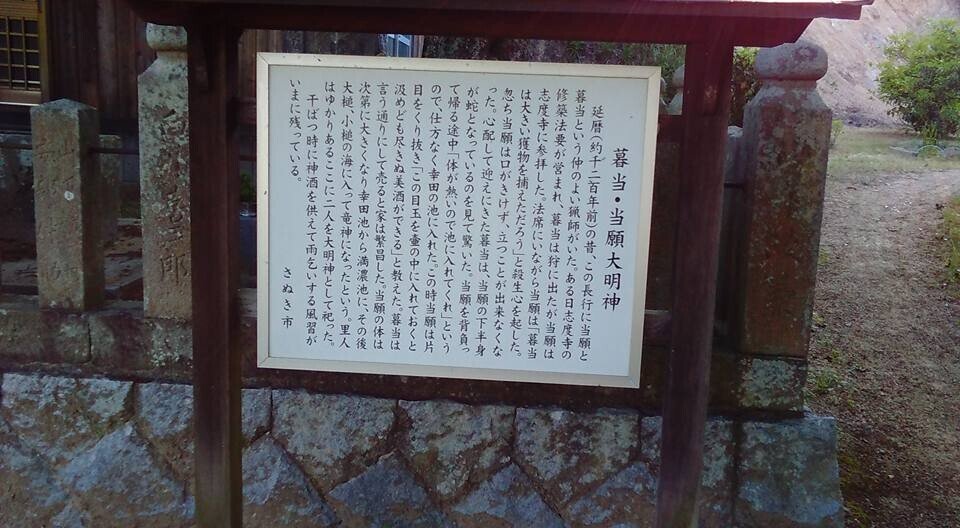 暮当・当願大明神
延暦(約千二百年前)の昔、この長行に当願と
暮当という仲のよい猟師がいた。ある日志度寺の
修築法要が営まれ、暮当は狩に出たが当願は
志度寺に参拝した。法席にいながら当願は「暮当
は大きい獲物を捕えただろう」と殺生心を起した。
忽ち当願は口がきけず、立つことが出来なくな
った。心配して迎えにきた暮当は、当願の下半身
が蛇となっているのを見て驚いた。当願を背負っ
て帰る途中「体が熱いので池に入れてくれ」という
ので、仕方なく幸田の池に入れた。この時当願は片
目をくり抜き「この目玉を壷の中に入れておくと
汲めども尽きぬ美酒ができる」と教えた。暮当は
言う通りにして売ると家は繁昌した。当願の体は
次第に大きくなり幸田池から満濃池に、その後
大槌、小槌の海に入って竜神になったという。里人
はゆかりあるここに二人を大明神として祀った。
干ばつ時に神酒を供えて雨乞いする風習が
いまに残っている。
さぬき市